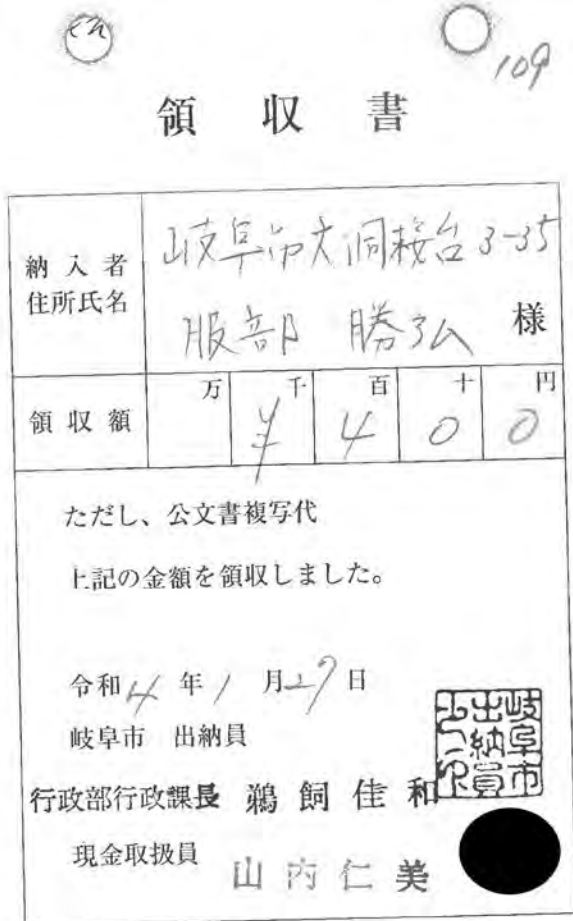 109
領収書
納入者
住所氏名
岐阜市大洞桜台3-35
服部 勝弘 様
領収額
万 千 百 十 円
¥ 4 0 0
ただし、公文書複写代
上記の金額を領収しました。
令和 4 年 1 月 27 日
岐阜市 出納員
行政部行政課長 鵜飼佳和
岐阜市
出納員
現金取扱員 山内仁美